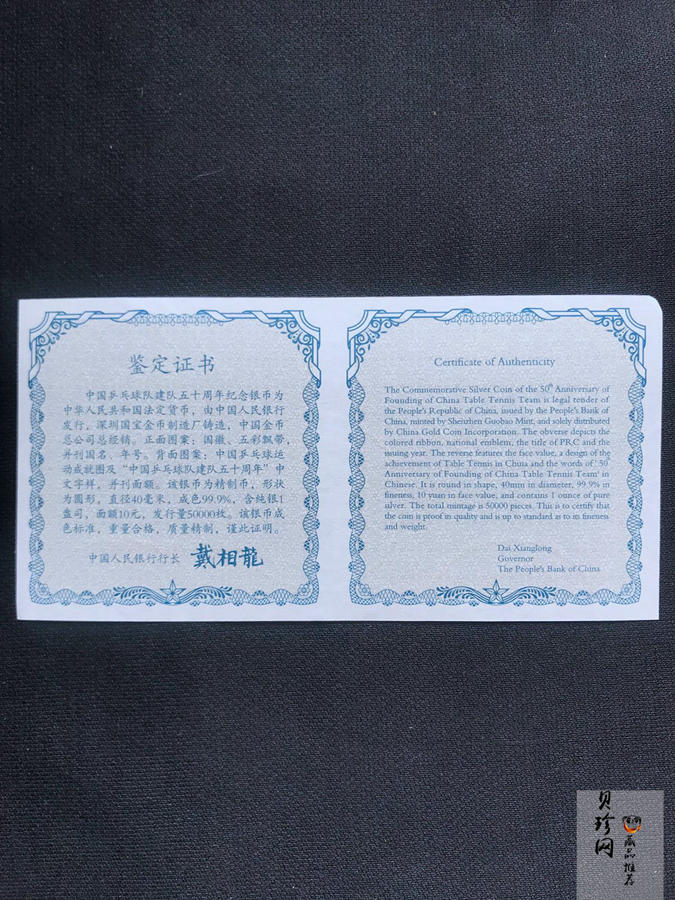 鉴定证书
中国乒乓球队建队五十周年纪念银币为
中华人民共和国法定货币，由中国人民银行
发行，深圳国宝金币制造厂铸造，中国金币
总公司总经销。正面图案：国徽、五彩飘带，
并刊国名、年号。背面图案：中国乒乓球运
动成就图及“中国乒乓球队建队五十周年”中
文字样，并刊面额。该银币为精制币，形状
为圆形，直径40毫米，成色99.9%，含纯银1
盎司，面额10元，发行量50000枚。该银币成
色标准，重量合格，质量精制，谨此证明。
中国人民银行行长 戴相龍
Certificate of Authenticity
The Commemorative Silver Coin of the 50th Anniversary of
Founding of China Table Tennis Team is legal tender of
the People's Republic of China, issued by the People's Bank of
China, minted by Shenzhen Guobao Mint, and solely distributed
by China Gold Coin Incorporation. The obverse depicts the
colored ribbon, national emblem, the title of PRC and the
issuing year. The reverse features the face value, a design of the
achievement of Table Tennis in China and the words of '50th
Anniversary of Founding of China Table Tennis Team' in
Chinese. It is round in shape, 40mm in diameter, 99.9% in
fineness, 10 yuan in face value, and contains 1 ounce of pure
silver. The total mintage is 50000 pieces. This is to certify that
the coin is proof in quality and is up to standard as to in fineness
and weight.
Dai Xianglong
Governor
The People's Bank of China
贝珍网
藏品推荐